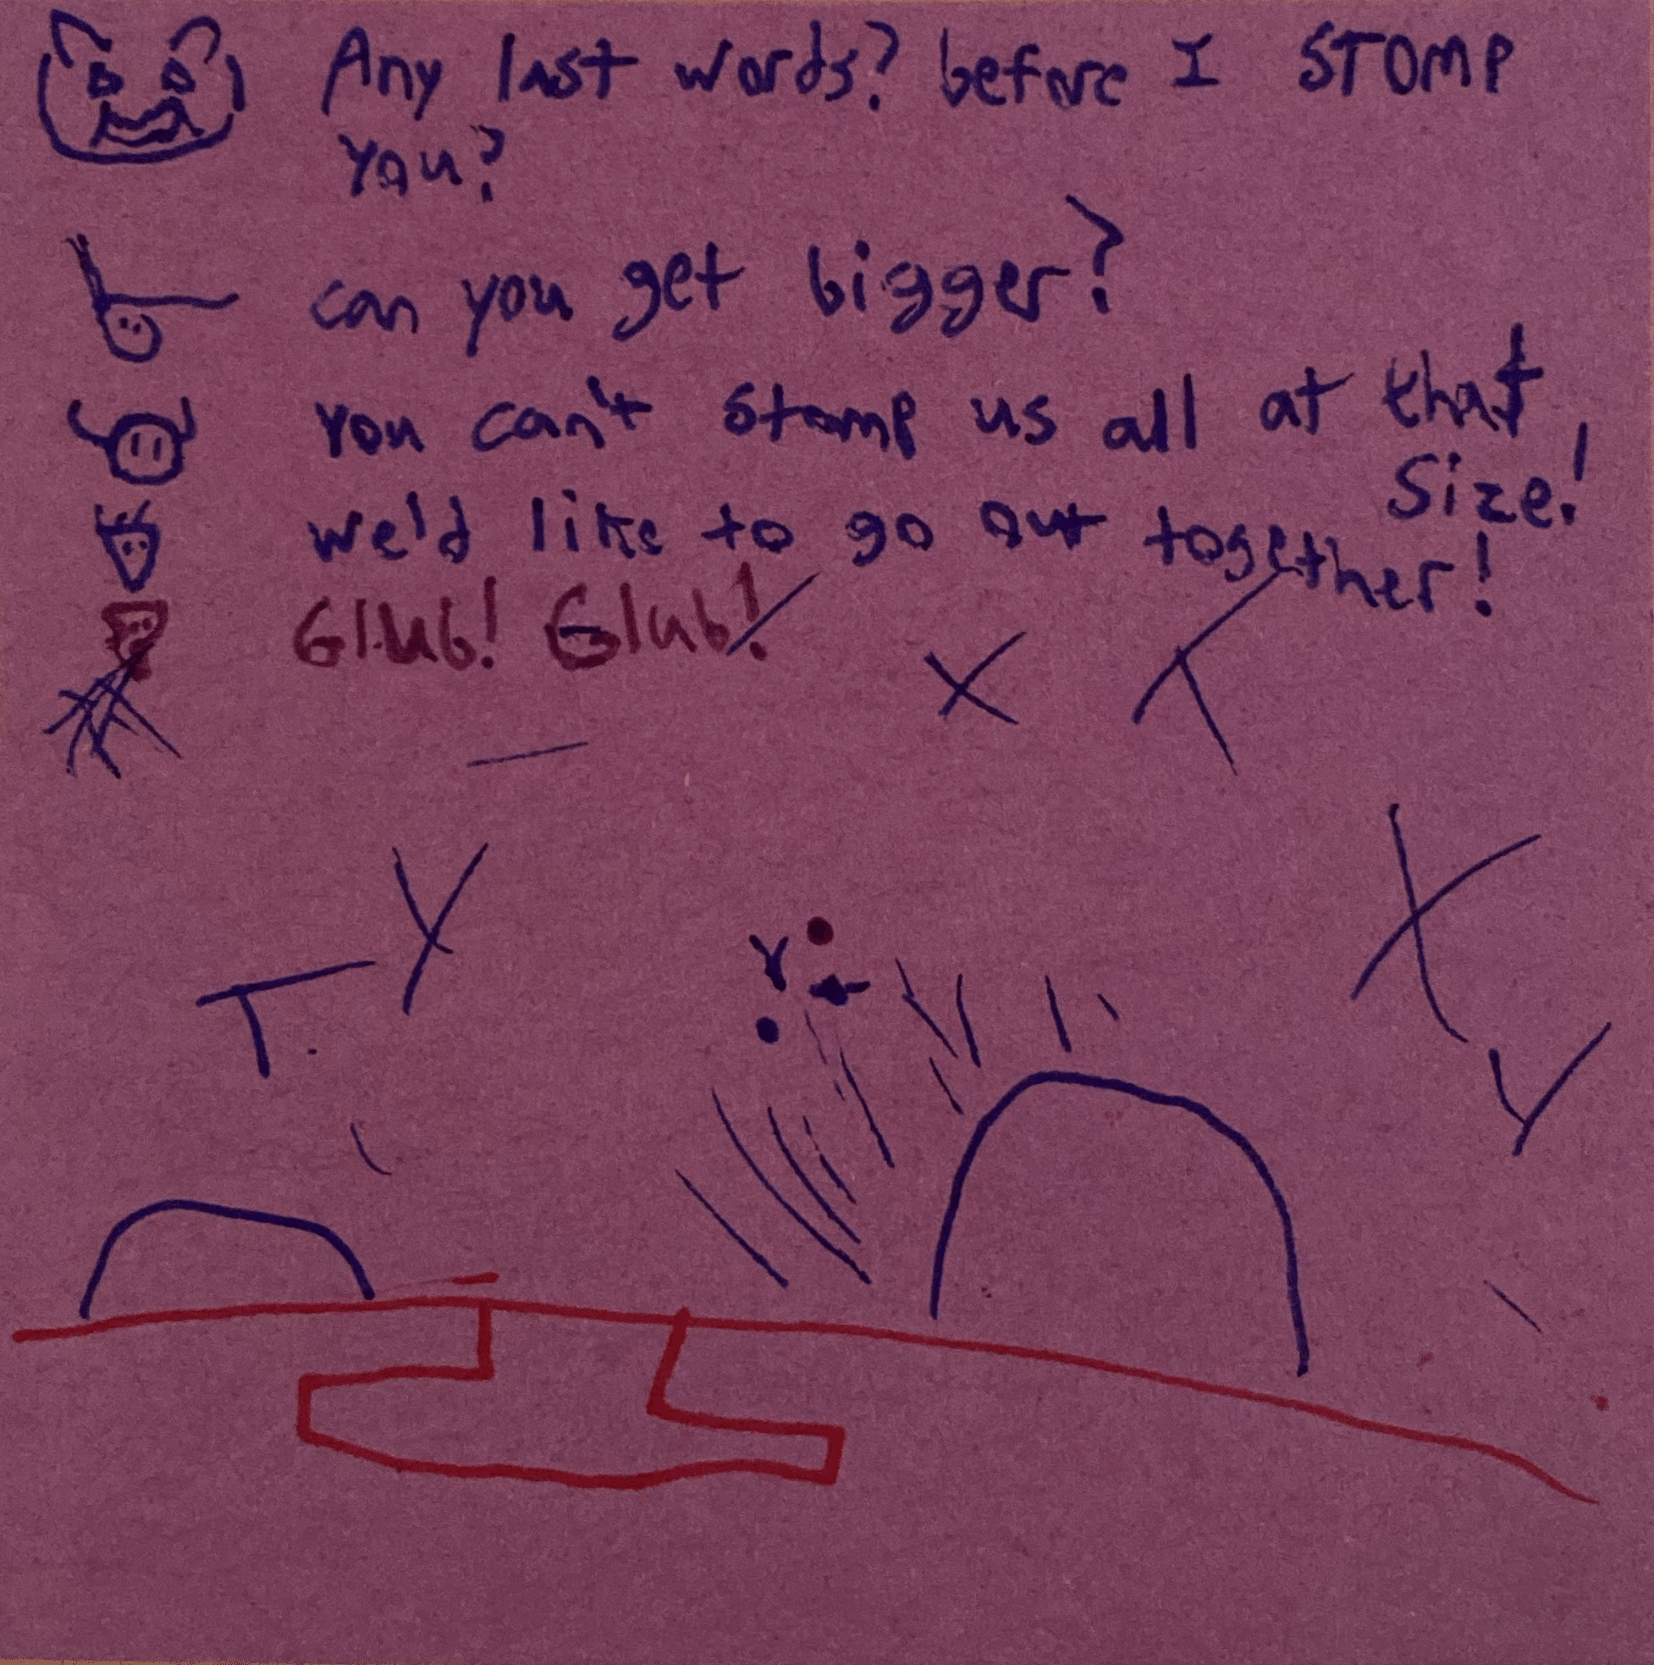 Any last words? before I STOMP
You?
can you get bigger?
You can't stomp us all at that
Size!
we'd like to go out together!
Glub! Glub!